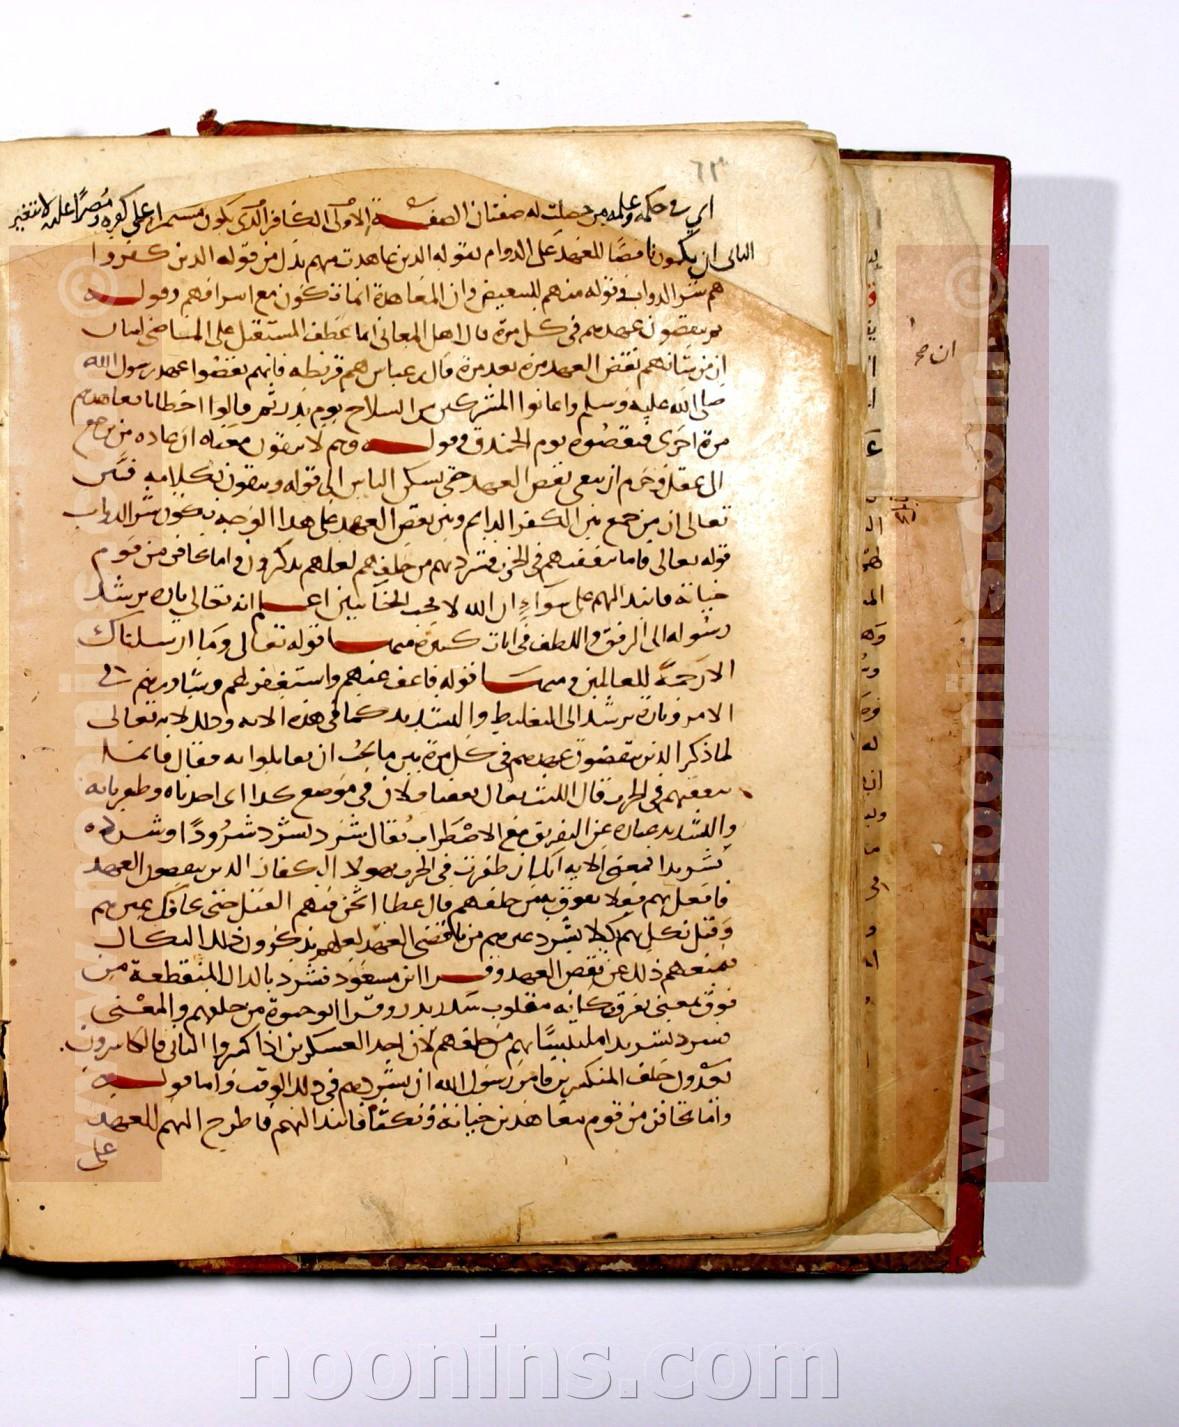 ٦٣
اي في حكمه وعلمه من حصلت له صفتان الصفة الاولى الكافر الذي يكون مستمرا على كفره ومصرا عليه لا يتغير
الثاني ان يكون ناقضا للعهد على الدوام لقوله الذين عاهدت منهم بدل من قوله الذين كفروا
هم شر الدواب وقوله منهم للتبعيض وان المعاهدة انما تكون مع اشرافهم وقوله
ثم ينقضون عهدهم في كل مرة قال اهل المعاني انما عطف المستقبل على الماضي لبيان
ان من شانهم نقض العهد مرة بعد مرة قال بن عباس هم قريظة فانهم نقضوا عهد رسول الله
صلى الله عليه وسلم واعانوا المشركين بالسلاح يوم بدر ثم قالوا اخطانا فعاهدهم
مرة اخرى فنقضوه يوم الخندق وقوله وهم لا يتقون معناه ان عاده من يرجع
الى عقل وحزم ان يتقي نقض العهد حتى يسكن الناس الى قوله ويثقون بكلامه فبين
تعالى ان من جمع بين الكفر الدايم وبين نقض العهد على هذا الوجه يكون شر الدواب
قوله تعالى فاما تثقفنهم في الحرب فشرد بهم من خلفهم لعلهم يذكرون واما تخافن من قوم
خيانة فانبذ اليهم على سواء ان الله لا يحب الخائنين اعلم انه تعالى تارة يرشد
رسوله الى الرفق واللطف في ايات كثيرة منها قوله تعالى وما ارسلناك
الا رحمة للعالمين ومنها قوله فاعف عنهم واستغفر لهم وشاورهم في
الامر وتارة يرشد الى التغليظ والتشديد كما في هذه الاية وذلك لانه تعالى
لما ذكر الذين ينقضون عهدهم في كل مرة بين ما يجب ان يعاملوا به فقال فاما
تثقفنهم في الحرب قال الليث يقال ثقفنا فلانا في موضع كذا اي اخذناه وظفرنا به
والتشديد عبارة عن التفريق مع الاضطراب يقال شرد يشرد شرودا وشرده
تشريدا فمعنى الاية انك ان ظفرت في الحرب بهولا الكفار الذين ينقضون العهد
فافعل بهم فعلا يفرق بهم من خلفهم قال عطا اثخن فيهم القتل حتى يخافك غيرهم
وقيل نكل بهم تنكيلا يشرد غيرهم من ناقضي العهد لعلهم يذكرون ذلك النكال
فيمنعهم ذلك عن نقض العهد وقرا ابن مسعود فشرذ بالذال المنقطعة من
فوق بمعنى ففرق وكانه مقلوب شذر وقرا ابو حيوة من خلفهم والمعنى
فشرد تشريدا متلبسا بهم من خلفهم لان احد العسكرين اذا كسروا الثاني فالكاسرون
يعدون خلف المنكسرين فامر رسول الله ان يشردهم في ذلك الوقت واما قوله
واما تخافن من قوم معاهدين خيانة ونكثا فانبذ اليهم فاطرح اليهم العهد
على
ان صح